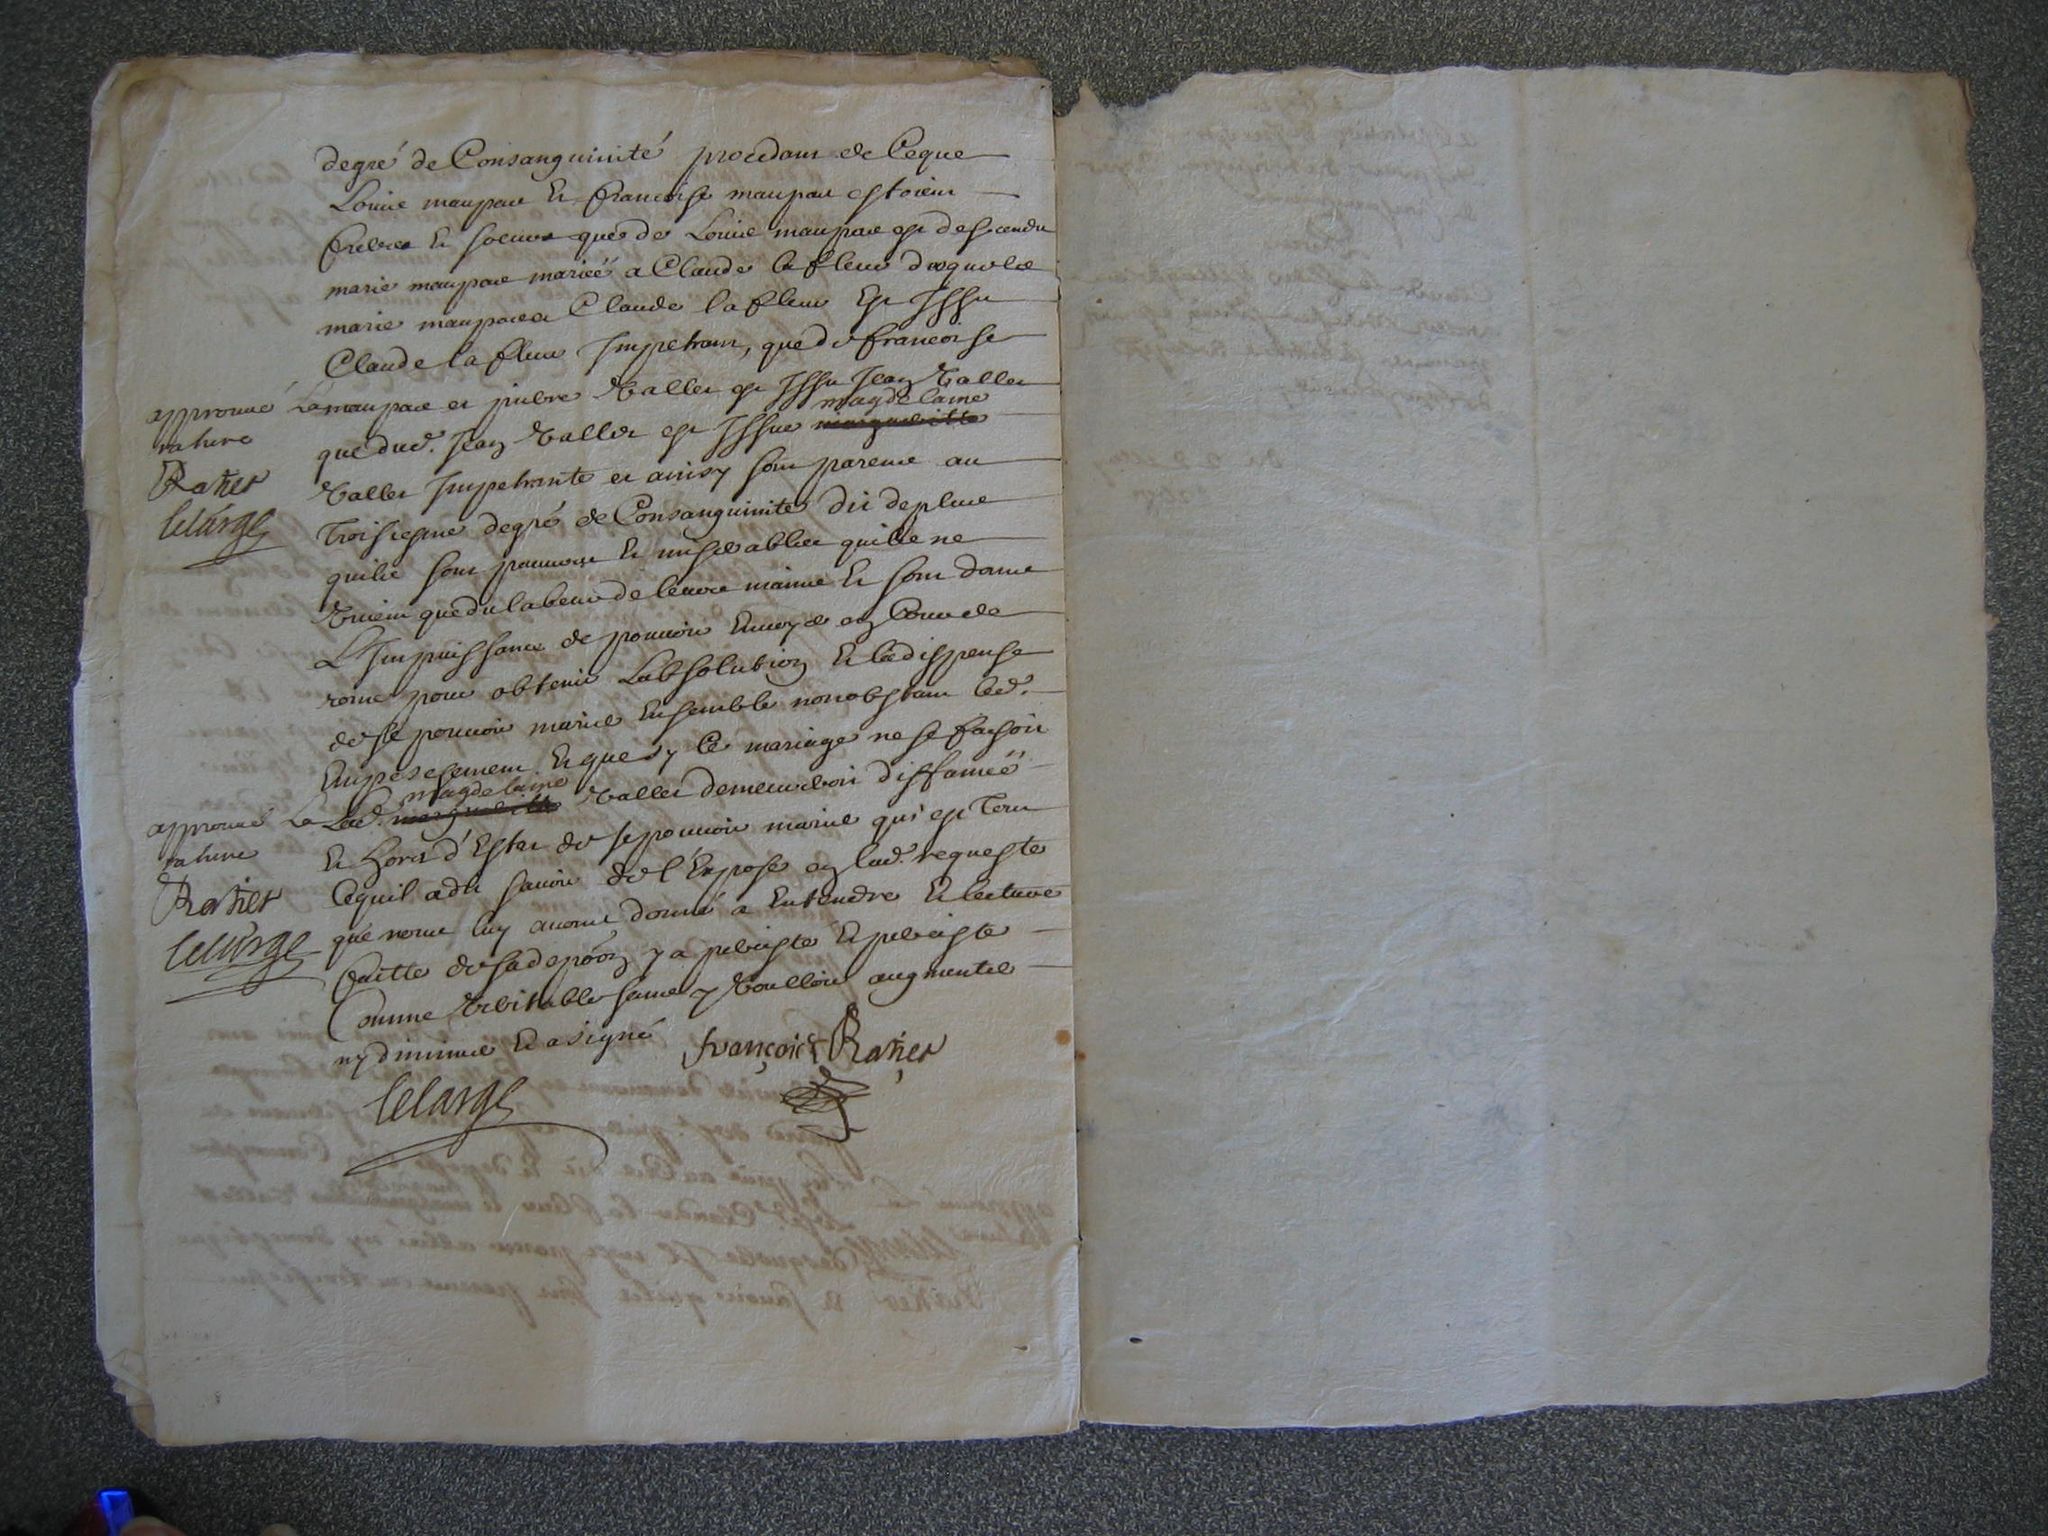 degré de Consanguinité procedant de Ceque
Louis maupou Et francoise maupou estoient
freres Et soeurs que de Louis maupou est descendu
marie maupou mariéé a Claude la fleur desquelz
marie maupou et Claude lafleur Est Issu
Claude la fleur Impetrant, que de francoise
maupou et pierre Vallet est Issu Jean Vallet
approuvé La
rature
Ratier
lelarge
magdelaine
que dud. Jean Vallet est Issue margueritte
Vallet Impetrante et ainsy sont parens au
Troisiesme degré de Consanguinité dit de plus
quilz sont pauvres Et miserables quilz ne
Vivent que du labeur de leurs mains Et sont dans
L'Impuissance de pouvoir Envoyer en Cour de
rome pour obtenir Labsolution Et la dispense
de se pouvoir marier Ensemble nonobstant led.
Empeschement Et que sy Ce mariage ne se faisoit
magdelaine
Lad. marguerite Vallet demeureroit diffaméé
approuvé La
rature
Ratier
lelarge
Et hors d'Estat de se pouvoir marier qui est Tout
Cequil a dit savoir de l'Exposé en lad. requeste
que nous luy avons donné a Entendre Et lecture
faitte de sa depoon y a persisté Et persiste
Comme Veritable sans y Voulloir augmenter
ny diminuer Et a signé
françois Ratier
lelarge